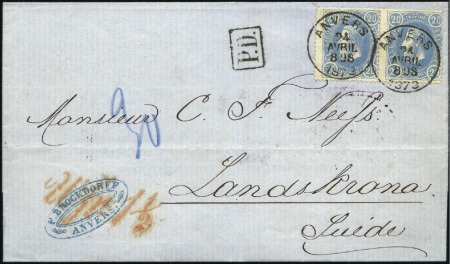 P.D.
20 20
ANVERS
24
AVRIL
8-9S
1873
ANVERS
24
AVRIL
8-9S
1873
Monsieur C. F. Neess
Landskrona
Suéde
BROCKDORFF
ANVERS